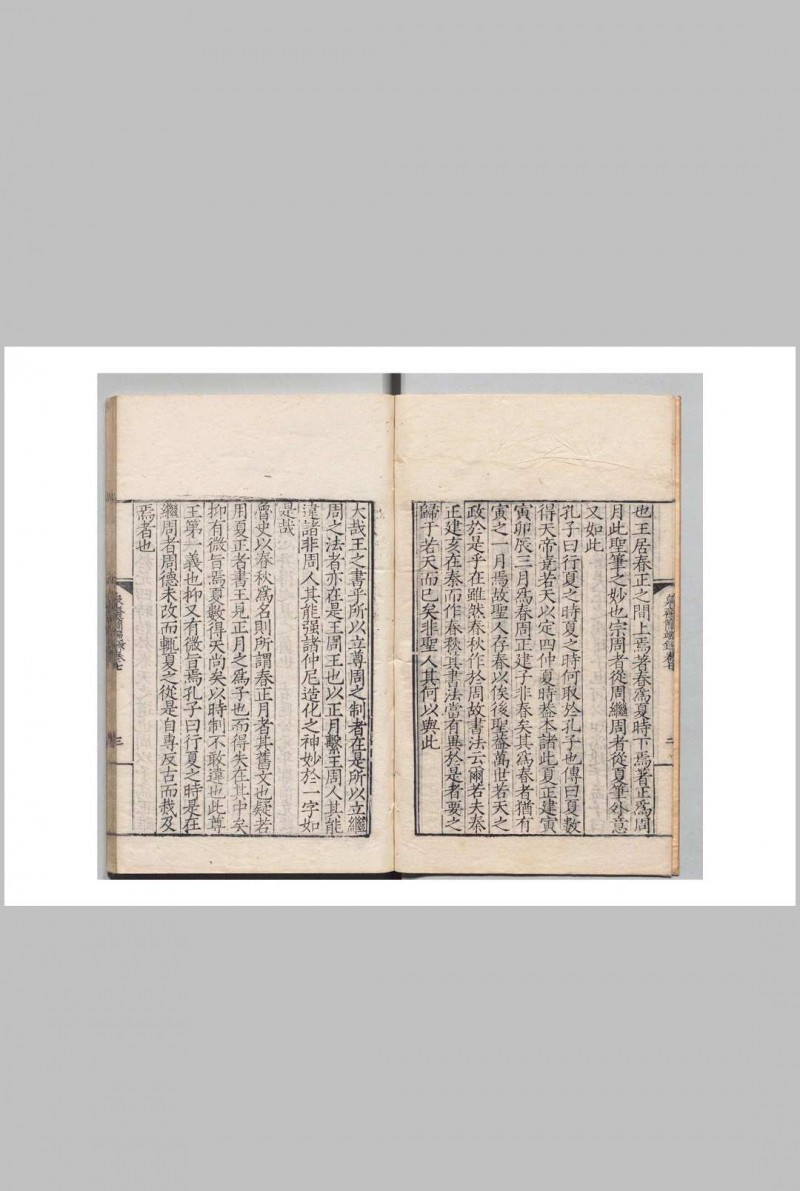 也王居春正之間上焉著春爲夏時下焉著正爲周
月此聖筆之妙也宗周者從周繼周者從夏筆外意
又如此
孔子曰行夏之時夏之時何取於孔子也傳曰夏數
得天帝堯若天以定四仲夏時葢本諸此夏正建寅
寅卯辰三月爲春周正建子非春矣其爲春者猶有
寅之一月焉故聖人存春以俟後聖葢萬世若天之
政於是乎在雖然春秋作於周故書法云爾若夫秦
正建亥在秦而作春秋其書法當有異於是者要之
歸于若天而已矣非聖人其何以與此
大哉王之書乎所以立尊周之制者在是所以立繼
周之法者亦在是王周王也以正月繫王周人其能
違諸非周人其能强諸仲尼造化之神妙於一字如
是哉
魯史以春秋爲名則所謂春正月者其舊文也疑若
用夏正者書王見正月之爲子也而得失在其中矣
抑有微旨焉夏數得天尚矣以時制不敢違也此尊
王第一義也抑又有微旨焉孔子曰行夏之時是在
繼周者周德未改而輒夏之從是自專反古而烖及
焉者也
卷七
三